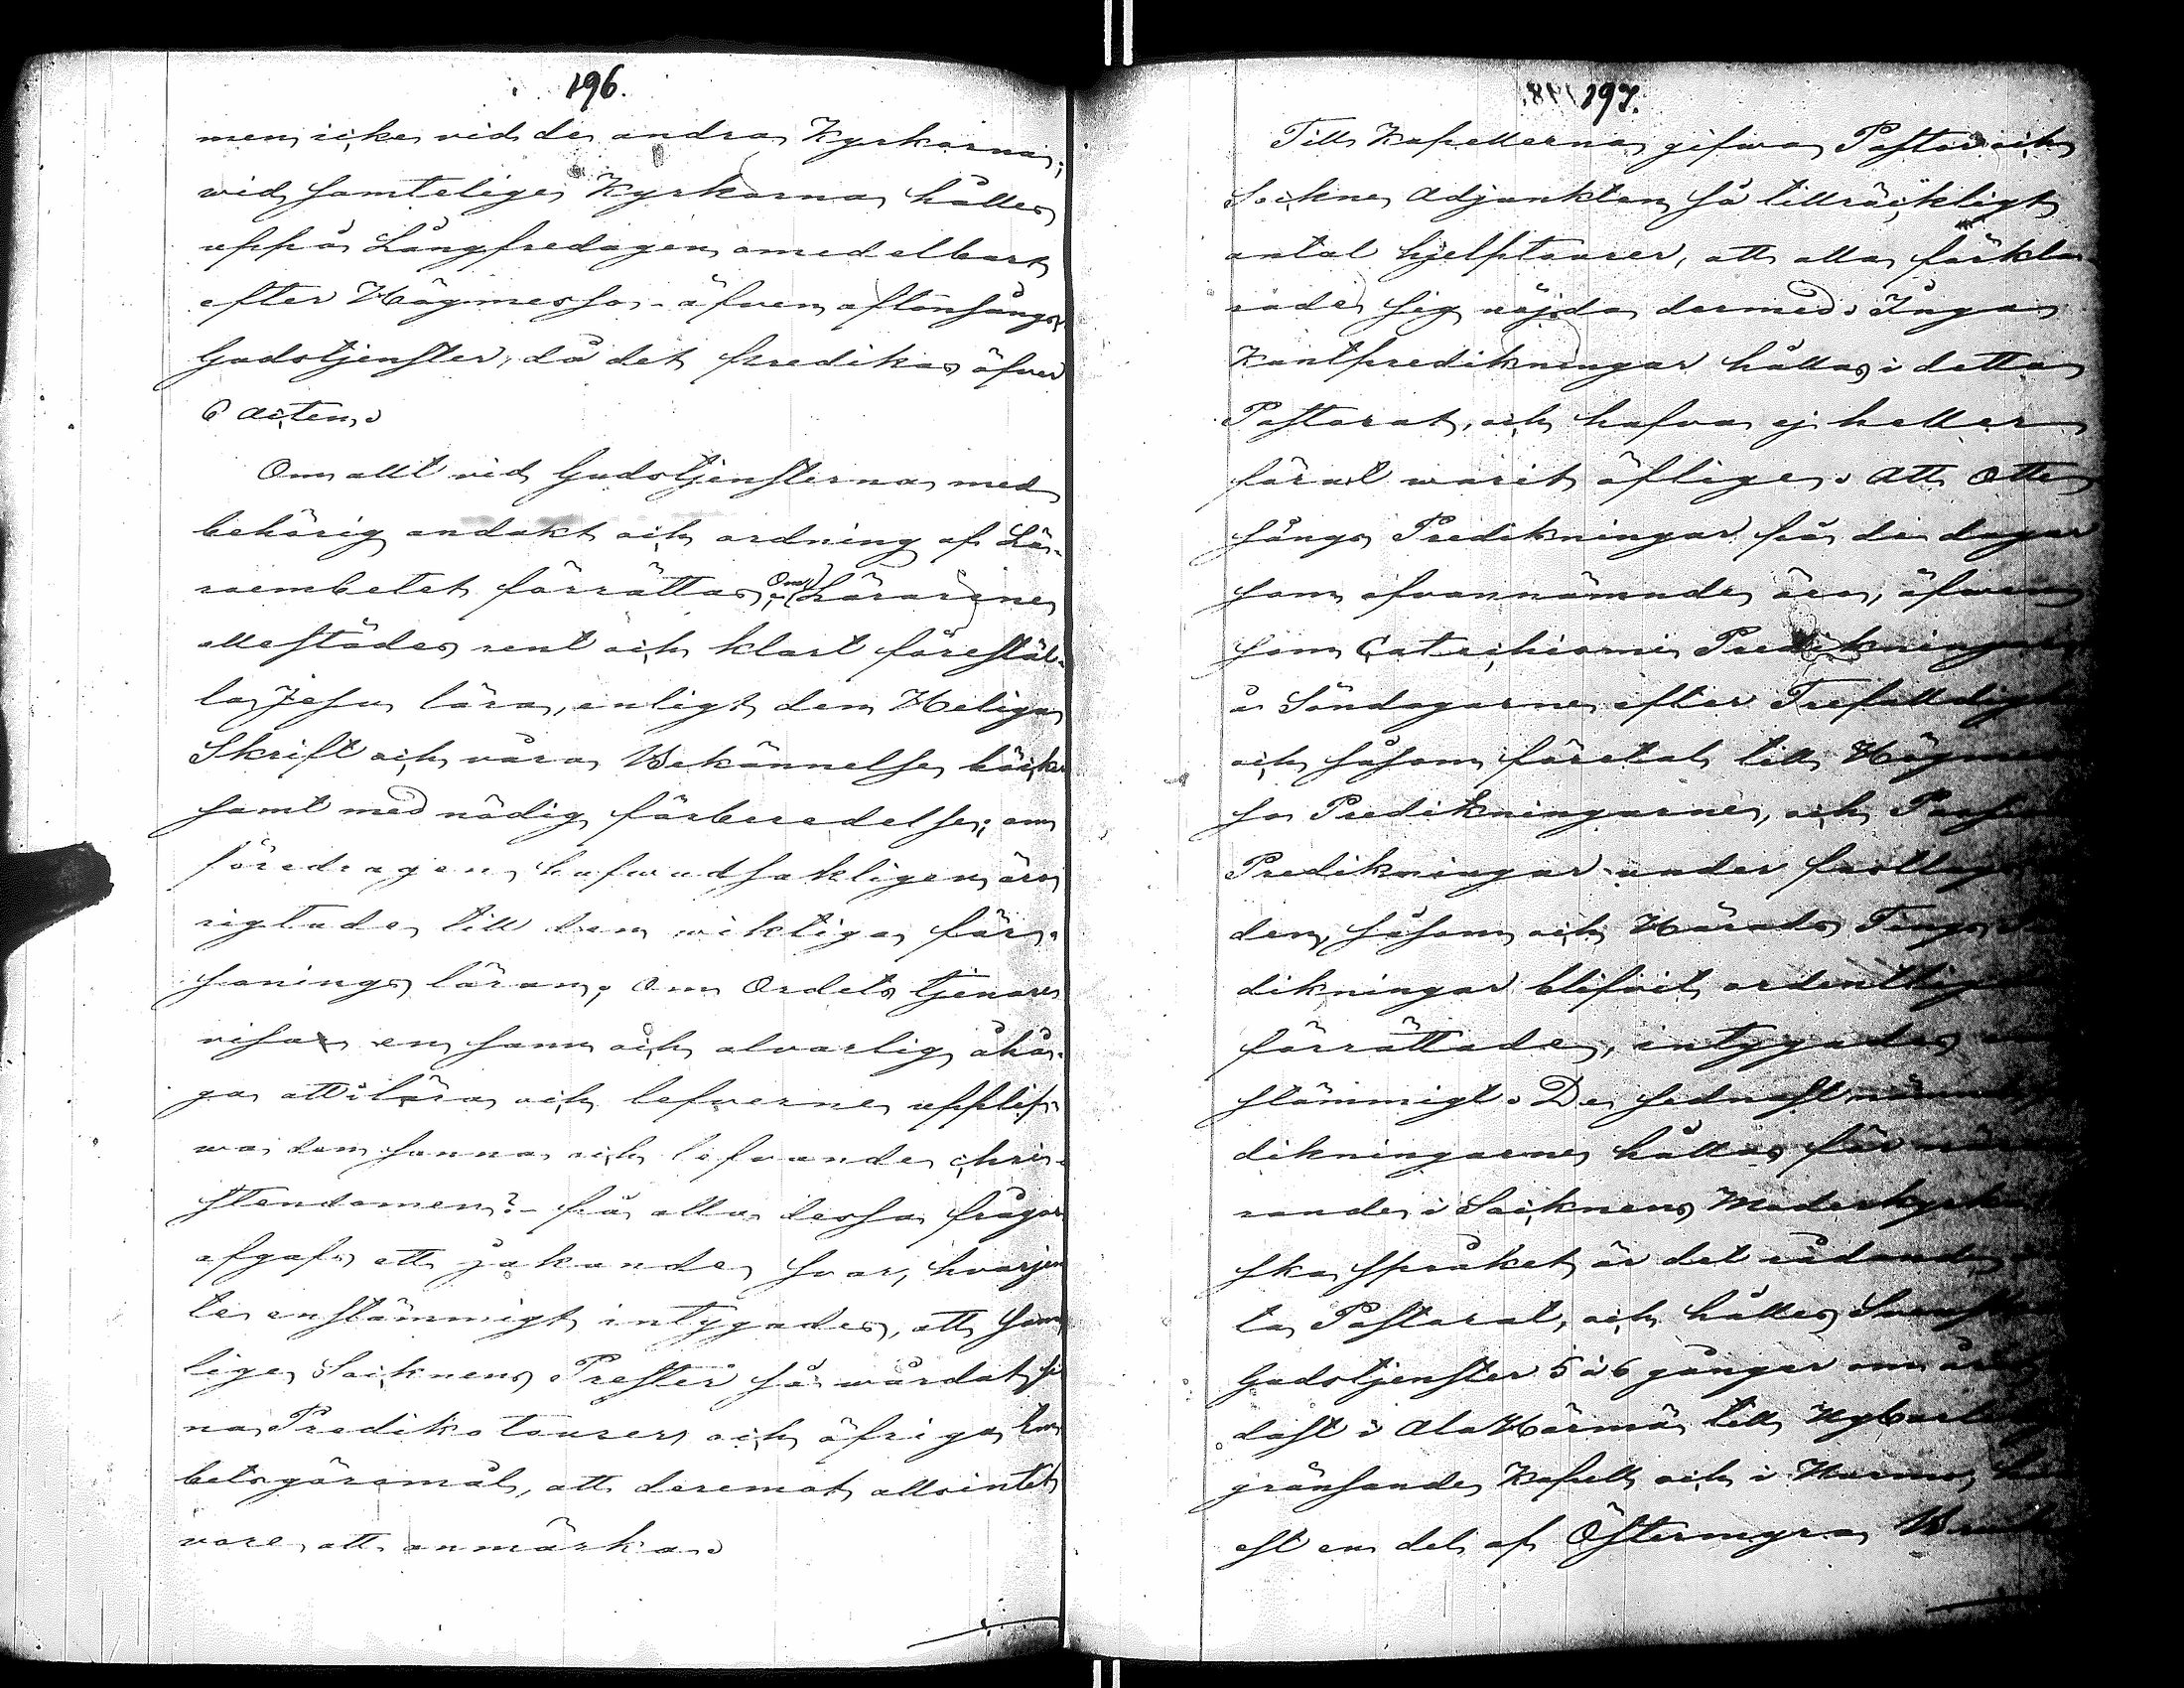 196.
men icke vid de andra Kyrkorna;
vid samtelige Kyrkorna hålles
uppå Långfredagen omedelbart
efter Högmesso- äfven aftonsångs
Gudstjenster, då det predikas öfver
6 acten.
Om allt vid Gudstjensterna med
behörig andakt och ordning af Lä-
roembetet förrättas; Om Lärarene
allestädes rent och klart förestäl-
la Jesu lära, enligt den Heliga
Skrift och våra Bekännelse böcker
samt med nödig förberedelse; om
föredragen hufvudsakligen äro
rigtade till den wiktiga för-
sonings läran; Om Ordets tjenare
visa en sann och alvarlig åhå-
ga att i lära och lefverne upplif-
va den sanna och lefvande chri-
stendomen? - på alla dessa frågor
afgafs ett jakande svar, hvarjem
te enstämmigt intygades, att sam
lige Socknens Prester så wårdat si
na Prediko tourer och öfriga Em
betsgöromål, att deremot allsintet
vore att anmärka.
197.
Till Kapellerna gifwa Pastor och
Sockne Adjunkten så tillräckligt
antal hjelptourer, att alla förkla-
rade sig nöjda dermed. Inga
Kontpredikningar hållas i detta
Pastorat, och hafva ej heller
förut warit öflige. Att Otte
sångs Predikningar på de dagar
som ofvannämnde äro, äfwen
som Catechismi Predikningar
å Söndagarne efter Trefalldigh
och såsom företal till Högmes
so Predikningarne, och Passions
Predikningar under fastlags
den, såsom och Härads Tings
dikningar blifvit ordentligt
förrättade, intygades en
stämmigt. De sednast nämnde
dikningarne hållas för när
rande i Socknens Moderkyrka
ska språket är det rådande
ta Pastorat, och hålles Svensk
Gudstjenster 5 à 6 gånger om året
dast i Ala Härmä till Nykarleby
gränsande Kapell och i Nurmo, h
est en del af Östermyra Bruk